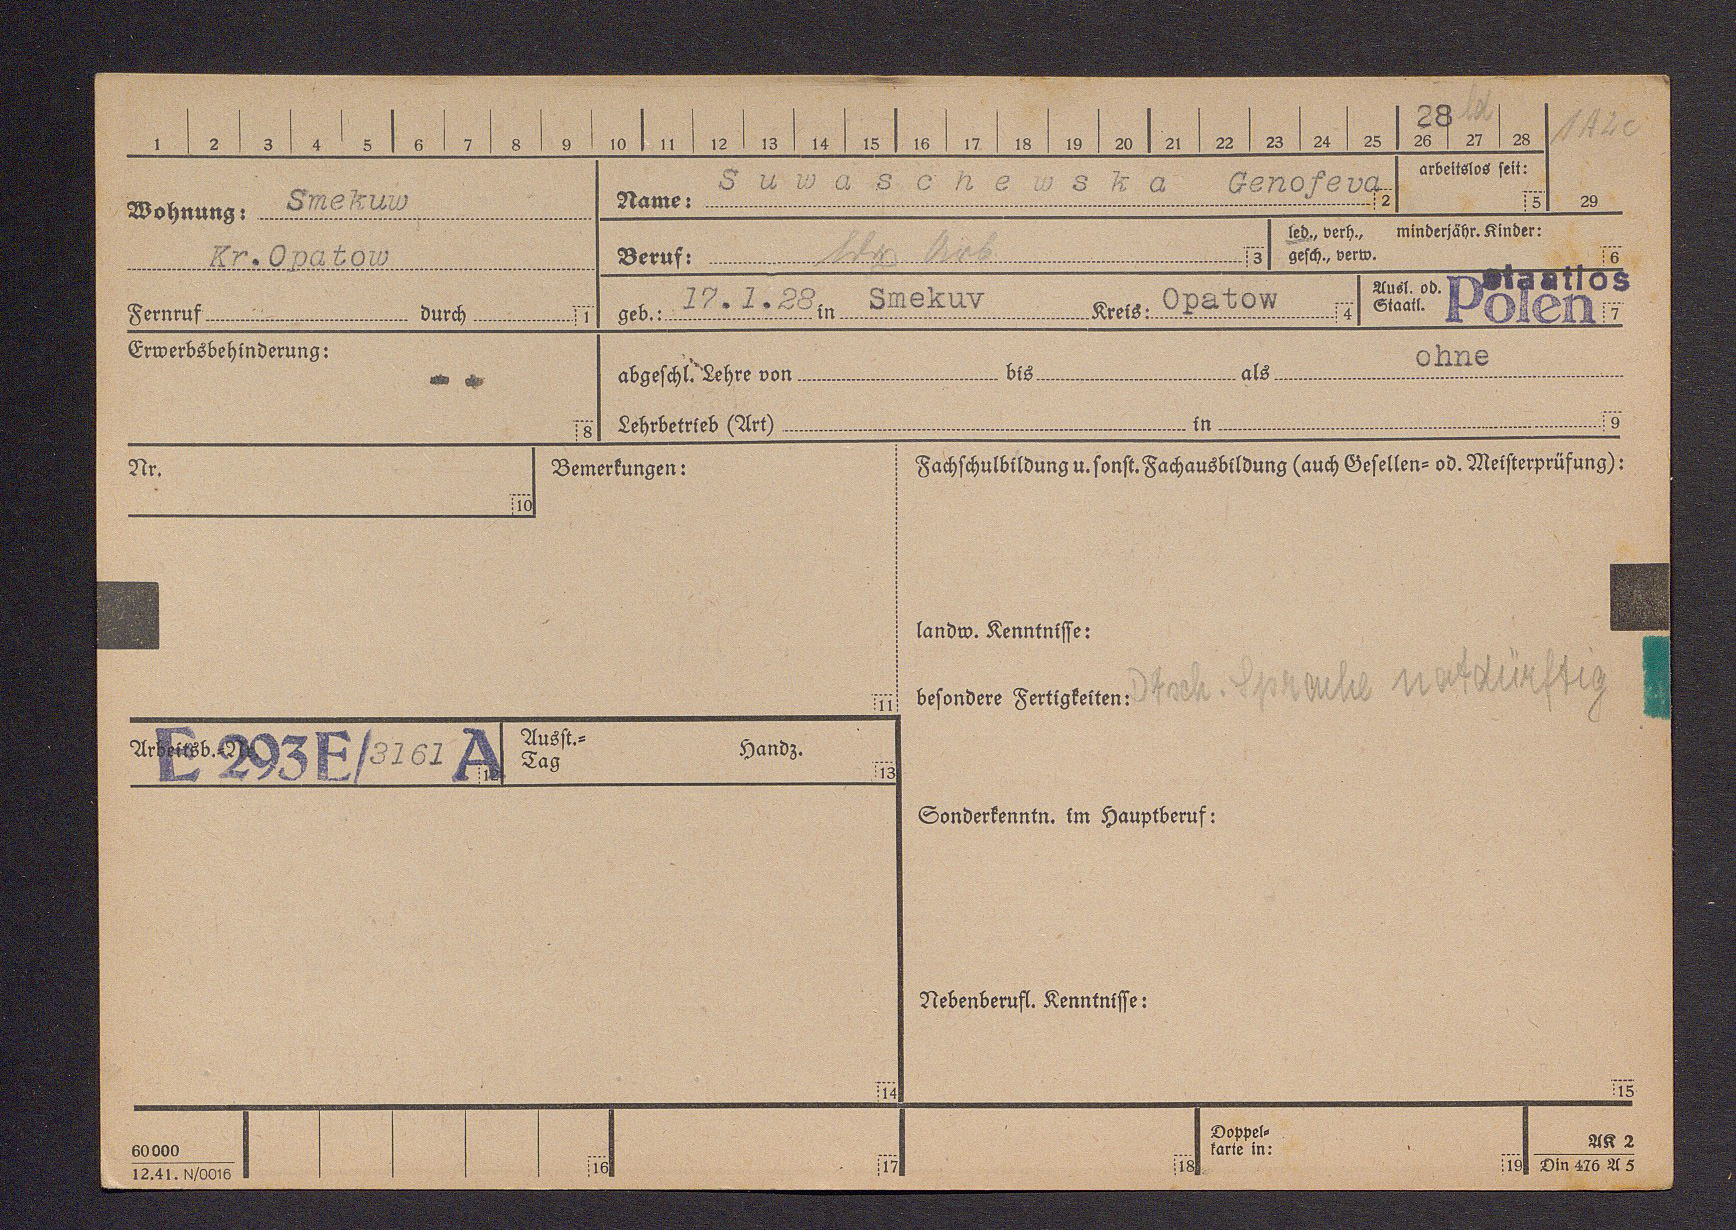 28 ld
1 2 3 4 5 6 7 8 9 10 11 12 13 14 15 16 17 18 19 20 21 22 23 24 25 26 27 28
1A2c
Wohnung: Smekuw
Kr.Opatow
Fernruf durch 1
Name: Suwaschewska Genofeva 2
arbeitslos seit:
5 29
Beruf: ldw Arb 3
led., verh., minderjähr. Kinder:
gesch., verw. 6
geb.: 17.1.28 in Smekuv Kreis: Opatow 4
Ausl. od. staatlos
Staatl. Polen 7
Erwerbsbehinderung:
- -
8
abgeschl. Lehre von bis als ohne
Lehrbetrieb (Art) in 9
Nr.
10
Bemerkungen:
11
Fachschulbildung u. sonst. Fachausbildung (auch Gesellen- od. Meisterprüfung):
landw. Kenntnisse:
besondere Fertigkeiten: Dtsch. Sprache notdürftig
Arbeitsb.-Nr. E 293 E/3161 A 12
Ausst.- Handz.
Tag 13
Sonderkenntn. im Hauptberuf:
Nebenberufl. Kenntnisse:
14 15
60000
12.41. N/0016
16 17 18
Doppel-
karte in: 19
AK 2
Din 476 A 5